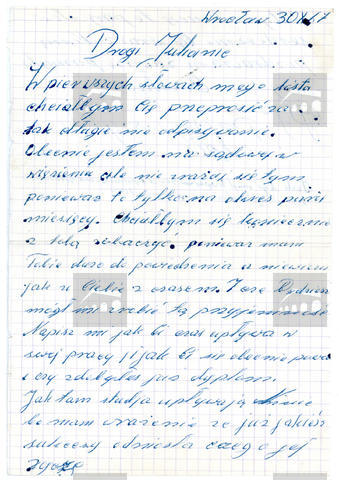 Wrocław 30
Drogi Julianie
W pierwszych słowach mego listu
chciałbym Cię przeprosić za
tak długie nie odpisywanie.
Obecnie jestem na sądowej w
więzieniu ale nie zrażaj się tym
ponieważ to tylko na okres paru
miesięcy. Chciałbym się koniecznie
z tobą zobaczyć ponieważ mam
Tobie dużo do powiedzenia a niewiem
jak u Ciebie z czasem.
mógł mi zrobić tą przyjemność
Napisz mi jak Ci czas upływa w
swej pracy i jak Ci się obecnie
i czy zdobyłeś już dyplom.
Jak tam studja upływają
bo mam wrażenie że już jakieś
sukcesy odniosła czego jej
życzę